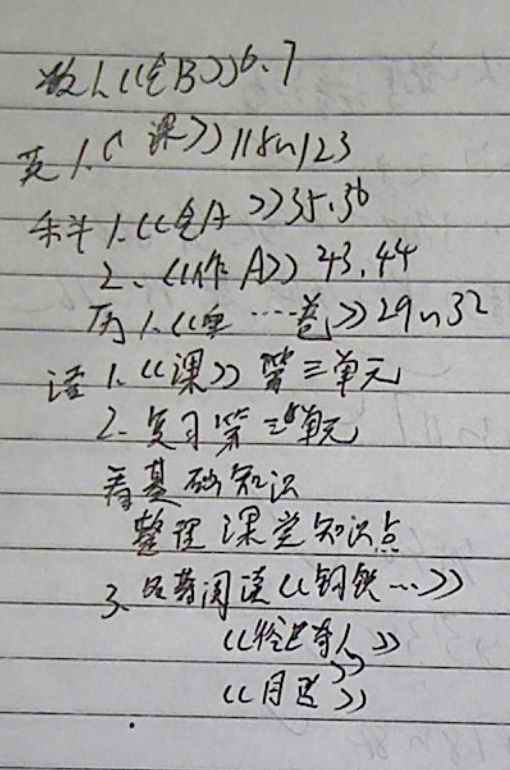 数1.《全B》6.7
英1.《课》118~123
科1.《全A》35.36
2.《作A》43.44
历1.《单……卷》29~32
语1.《课》第三单元
2.复习第三单元
看基础知识
整理课堂知识点
3.名著阅读《钢铁…》
《人》
《月》